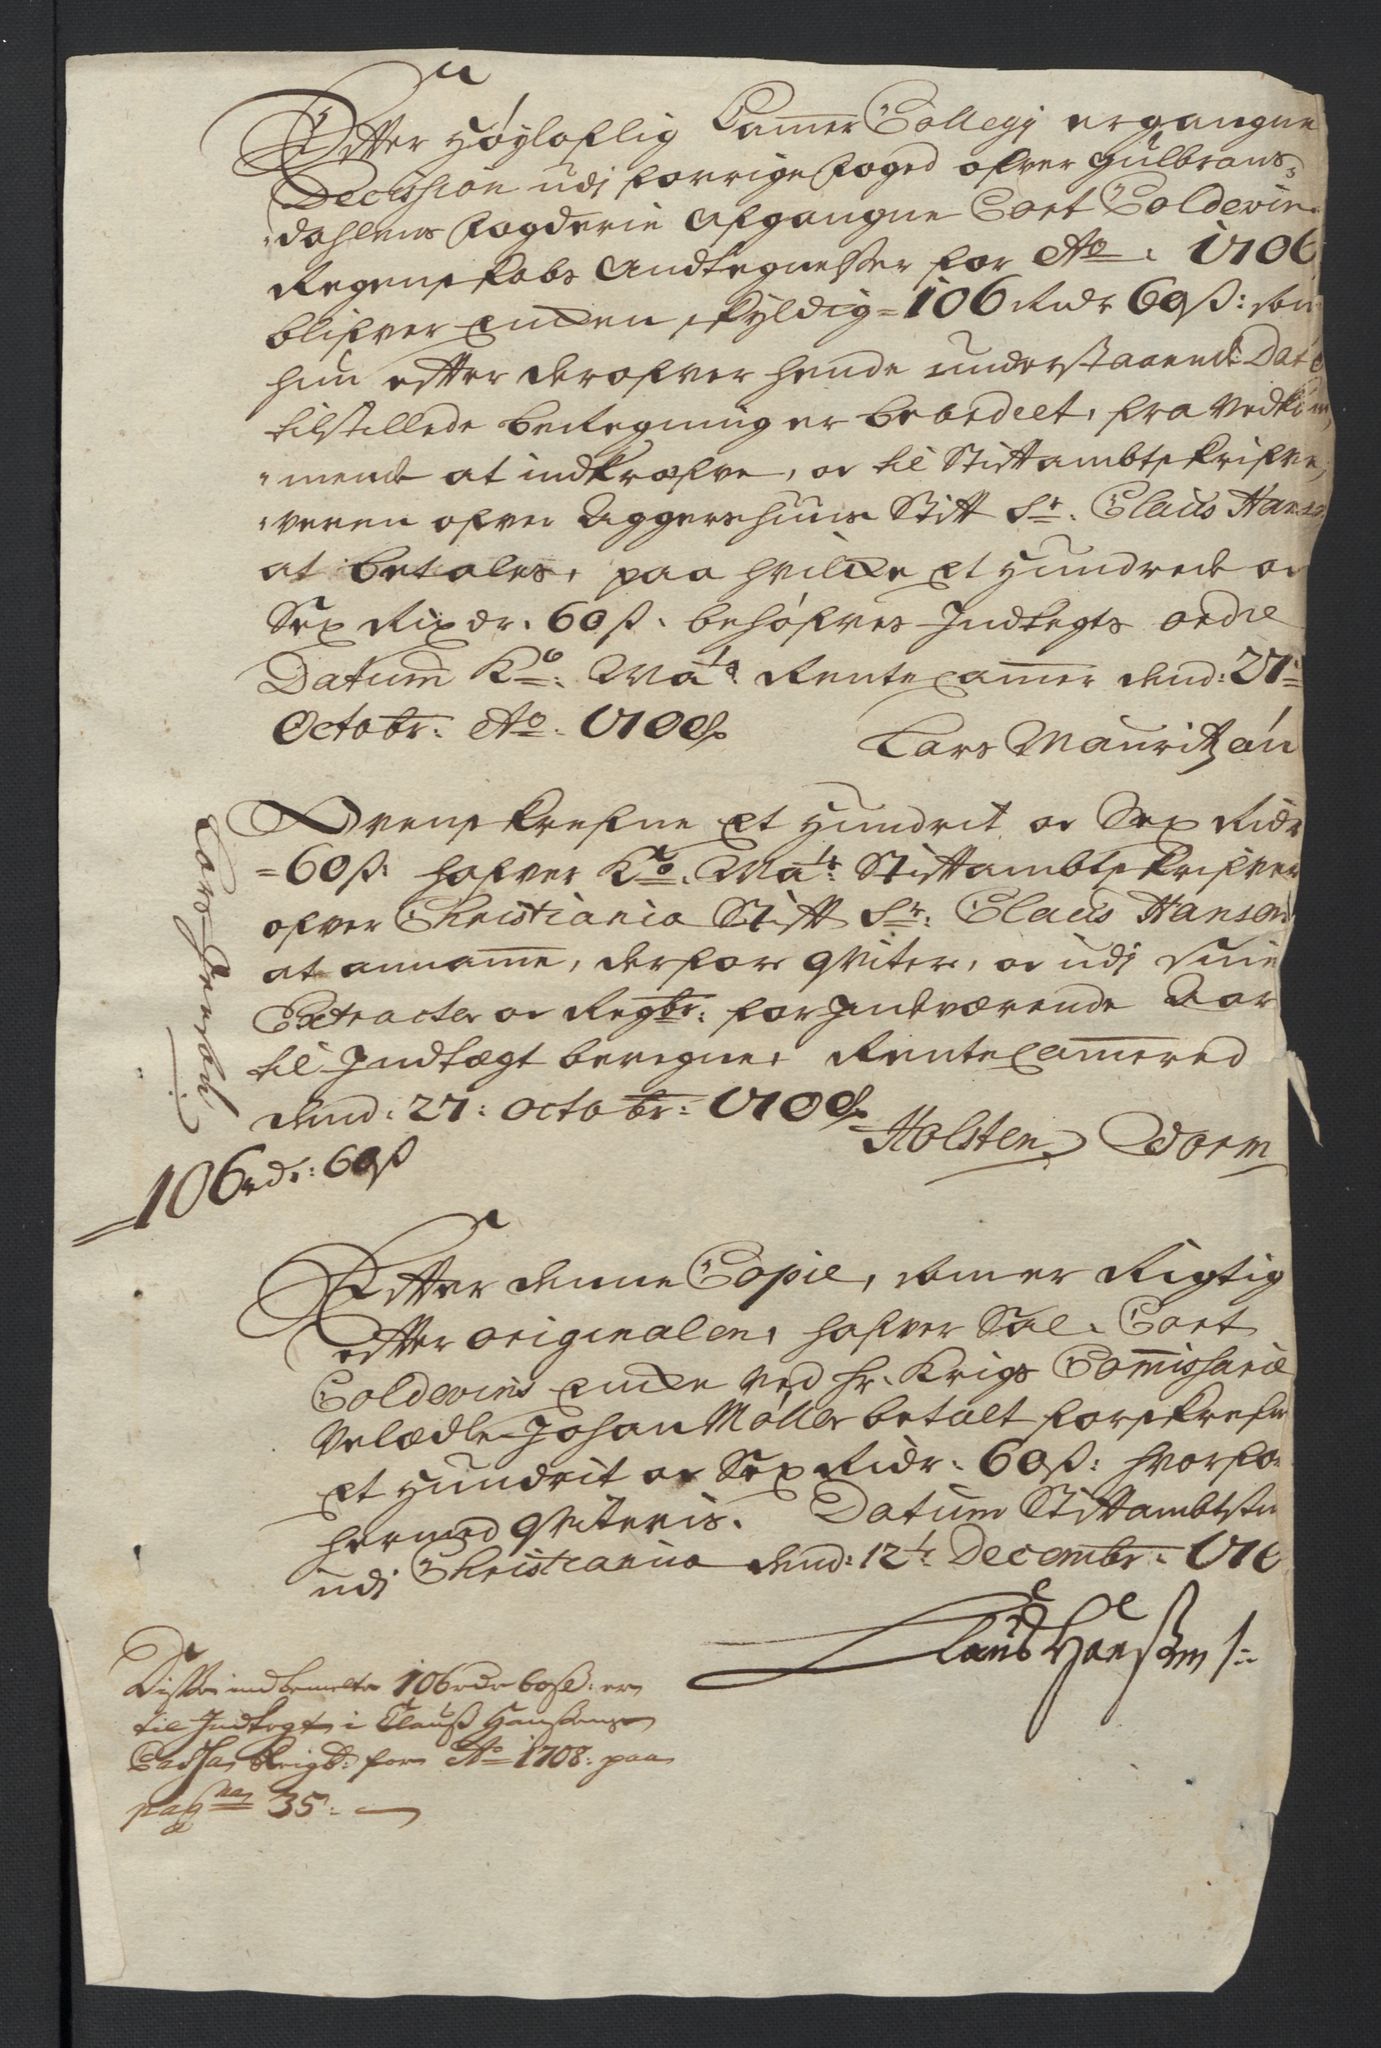 Efter Høyloflig Cammer Collegij ergangne
Decission udj forrige Foged ofver Gulbrans=
dahlens Fogderie Afgangne Cort Coldevin
Regenskabs Andtegnelsser for Ao 1706
blifver Encken skyldig = 106 Rixdr 60 ß: som
hun efter derofver hende understaaende Dato
tilstillede beregning er bebedelt, fra Vedkom
mende at indkræfve, oc til Stiftambtskrifve,
veren ofver Aggershuus Stift Sr. Claus Hans
at betales, paa hvilcke Et Hundrede oc
Sex Rixdr. 60 ß. behøfves Indtegts ordre
Datum Ko: Mats Rente Cammer dend: 27
Octobr. Ao. 1708
Lars Mauritzøn
Ovenskrefne Et Hundrit oc Sex Ridr
= 60 ß: hafver Ko. Mats Stiftambtskrifver
ofver Christiania Stift Sr. Claus Hansen
at annamme, derfor qvitere, oc udj sine
Extracter oc Regbr: for Indværende Aar
til Indtægt beregne, Rente Cammered
dend: 27: Octobr: 1708
Holsten Worm
106 rdr: 60 ß
Efter denne Copie, som er Rigtig
efter originalen, hafver Sal. Cort
Coldevins Encke ved hr. Krigs Commissarie
Velædle Johan Møller betalt forskrefne
Et Hundrit oc Sex Ridr. 60 ß: hvorfor
hermed qviteris. Datum Stiftambtstu
udj Christiania dend: 12te Decembr. 170
Claus Hanssen
Disse indbemelte 106 rdr 60 sl: er
til Indtegt i Clauss Hanssens
Cassa Reigb: for Ao 1708: paa
pag 35